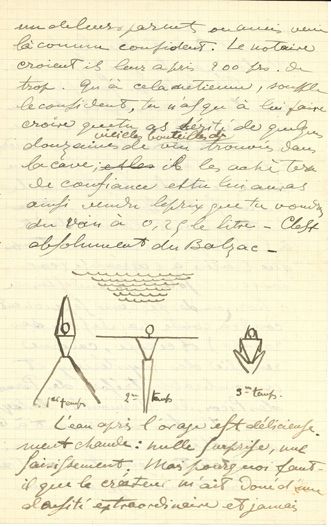 un de leurs parents ou amis venu
là comme confident. Le notaire
croient-ils leur a pris 200 frs. de
trop. Qu'à cela ne tienne, souffle
le confident, tu n'as qu'à lui faire
croire que tu as hérité de quelques
vieilles bouteilles de
douzaines de vin trouvées dans
la cave, il les achètera
de confiance et tu lui auras
ainsi vendu le prix que tu voudras
du vin à 0,25 le litre - C'est
absolument du Balzac -
1er temps 2me temps 3me temps.
L'eau après l'orage est délicieuse-
ment chaude : nulle surprise, nul
saisissement. Mais pourquoi faut-
il que le créateur m'ait doué d'une
densité extraordinaire et jamais